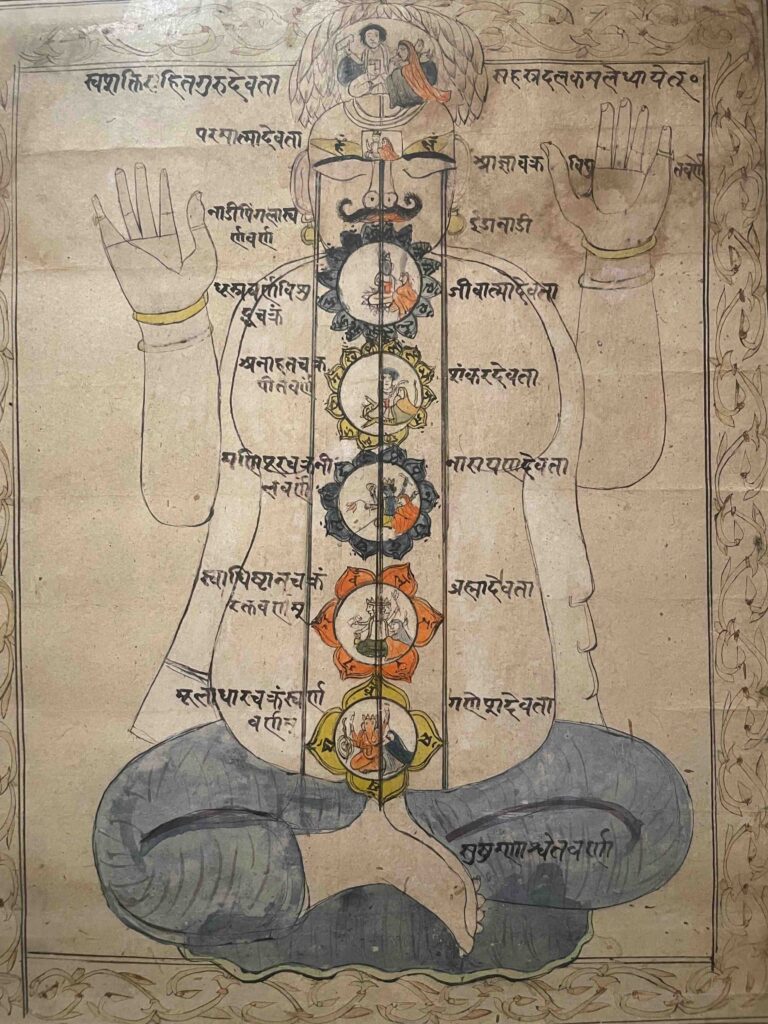 स्वशक्तिसहितगुरुदेवता
सहस्रदलकमलेध्यायेत्॰
परमात्मादेवता
हं
क्षं
आज्ञाचक्रं
नाडीपिंगलास्व
र्णवर्ण
इडानाडी
धूम्रवर्णविशु
द्धचक्रं
जीवात्मादेवता
अनाहतचक्र
पीतवर्ण
शंकरदेवता
मणिपूरचक्रंनी
लवर्ण
नारायणदेवता
स्वाधिष्टानचक्रं
रक्तवर्णम्
ब्रह्मादेवता
मूलाधारचक्रंस्वर्ण
वर्णन
गणेशदेवता
सुषुम्णाश्वेतवर्ण